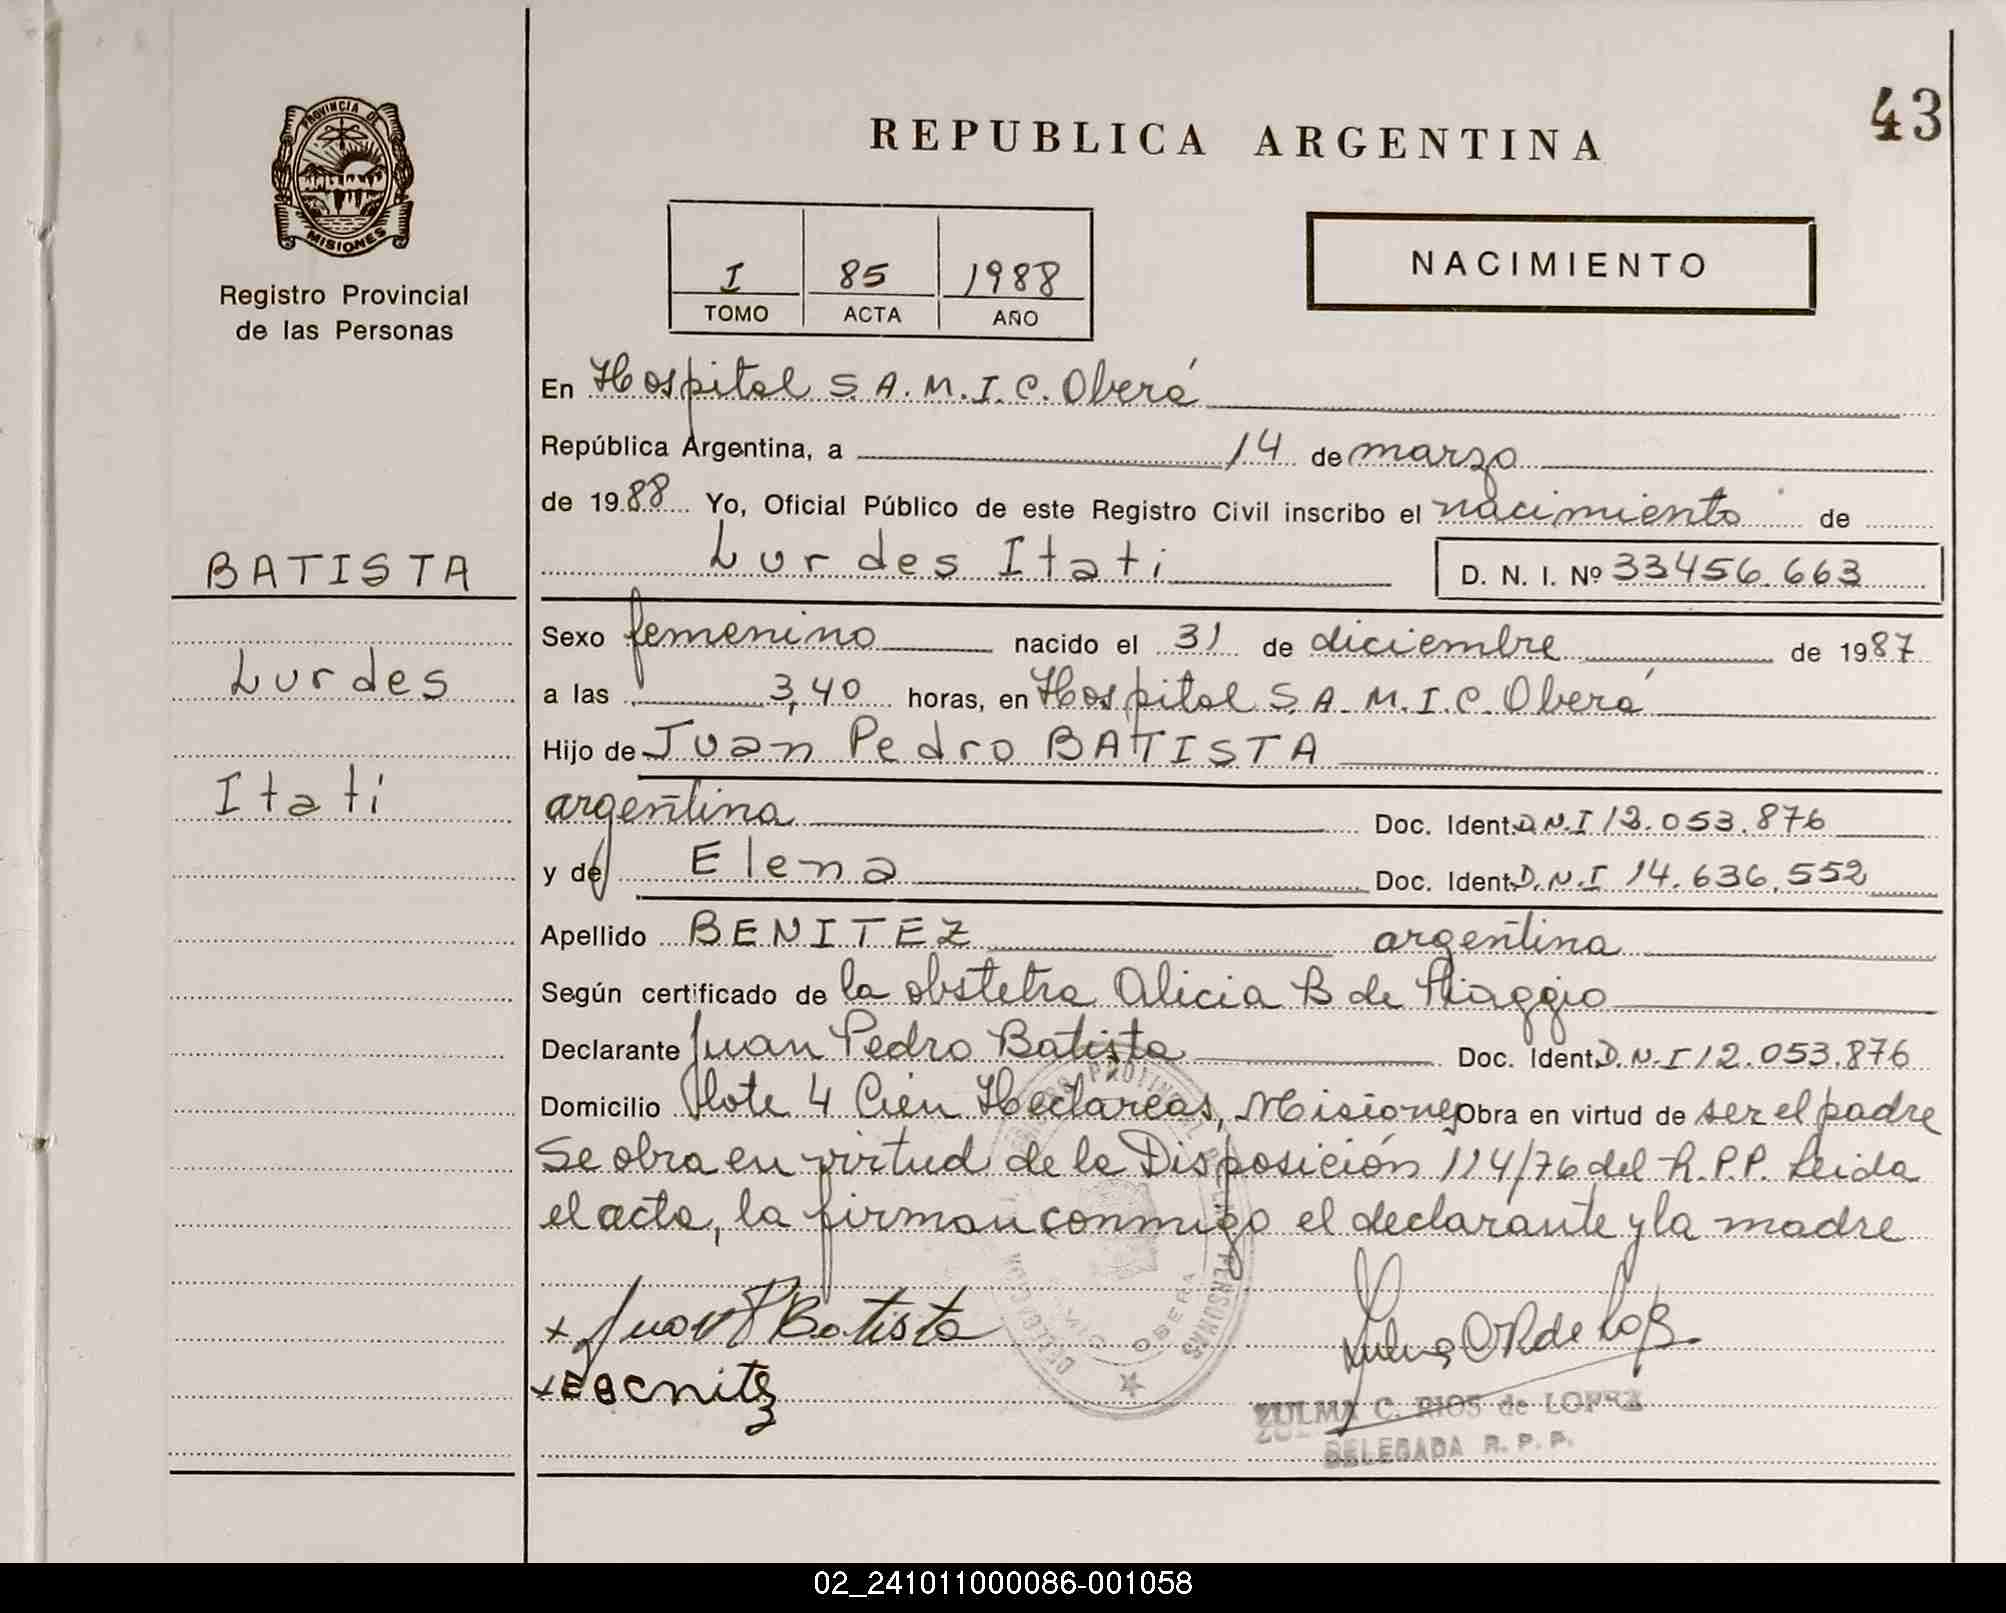 43
PROVINCIA DE
MISIONES
Registro Provincial
de las Personas
REPUBLICA ARGENTINA
I 85 1988
TOMO ACTA AÑO
NACIMIENTO
En Hospital S.A.M.I.C. Oberá
República Argentina, a 14 de marzo
de 1988 Yo, Oficial Público de este Registro Civil inscribo el nacimiento de
Lurdes Itati D. N. I. Nº 33456.663
BATISTA
Lurdes
Itati
Sexo femenino nacido el 31 de diciembre de 1987
a las 3,40 horas, en Hospital S.A.M.I.C. Oberá
Hijo de Juan Pedro BATISTA
argentina Doc. Ident. D.N.I 12.053.876
y de Elena Doc. Ident. D.N.I 14.636.552
Apellido BENITEZ argentina
Según certificado de la obstetra Alicia B de Piaggio
Declarante Juan Pedro Batista Doc. Ident. D.N.I 12.053.876
Domicilio lote 4 Cien Hectareas, Misiones obra en virtud de ser el padre
Se obra en virtud de la Disposición 114/76 del R.P.P. Leida
el acta, la firman conmigo el declarante y la madre
x Juan P Batista
x E Benitez
OBERA
ZULMA C. RIOS de LOPEZ
DELEGADA R. P. P.
02_241011000086-001058